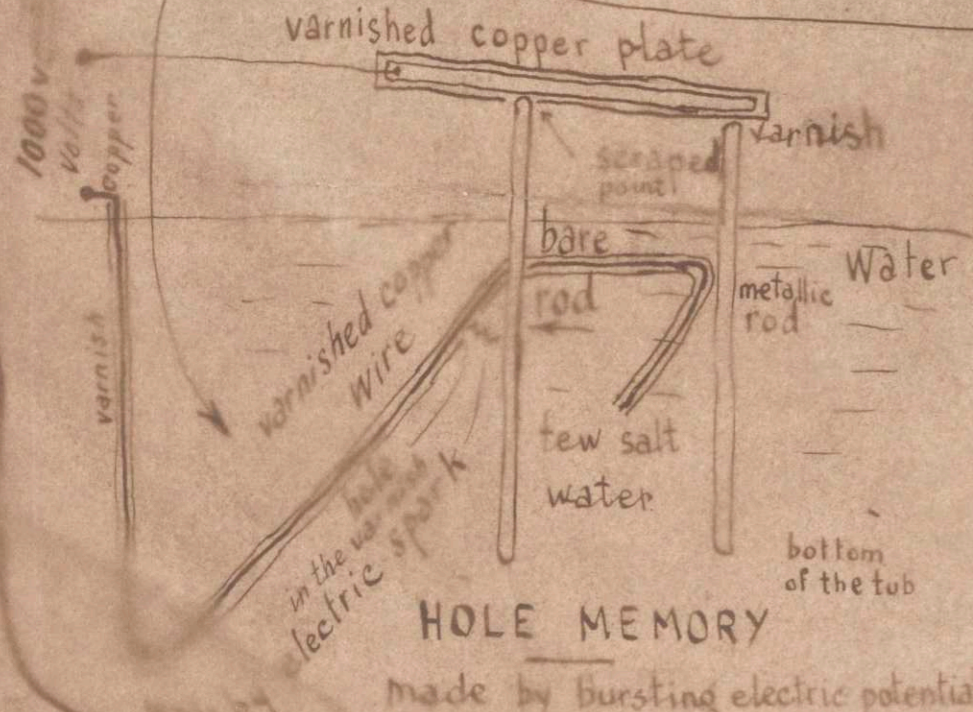 varnished copper plate
1000 v
volts
copper
varnish
scraped
point
bare
rod
Water
metallic
rod
varnish
varnished copper
wire
few salt
water
hole
in the varnish
electric spark
bottom
of the tub
HOLE MEMORY
made by bursting electric potential